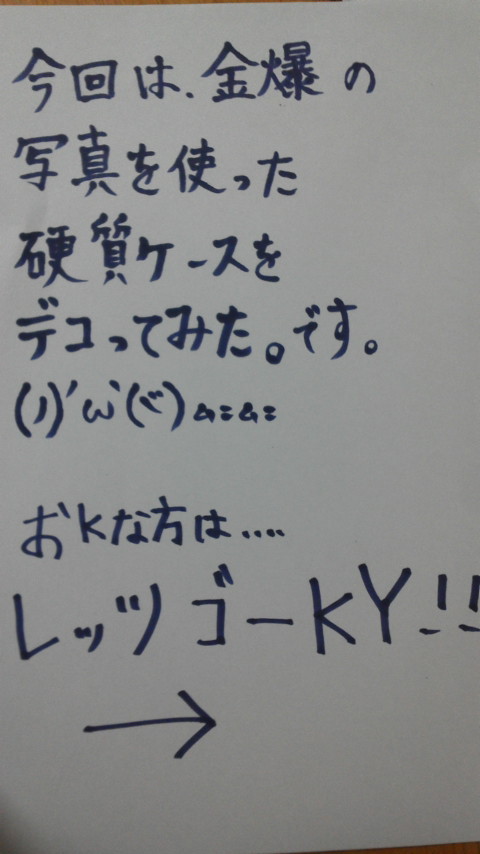 今回は、金爆の
写真を使った
硬質ケースを
デコってみた。です。
(ง)'ω'(ว)ムニムニ
おkな方は....
レッツゴーKY!!
→